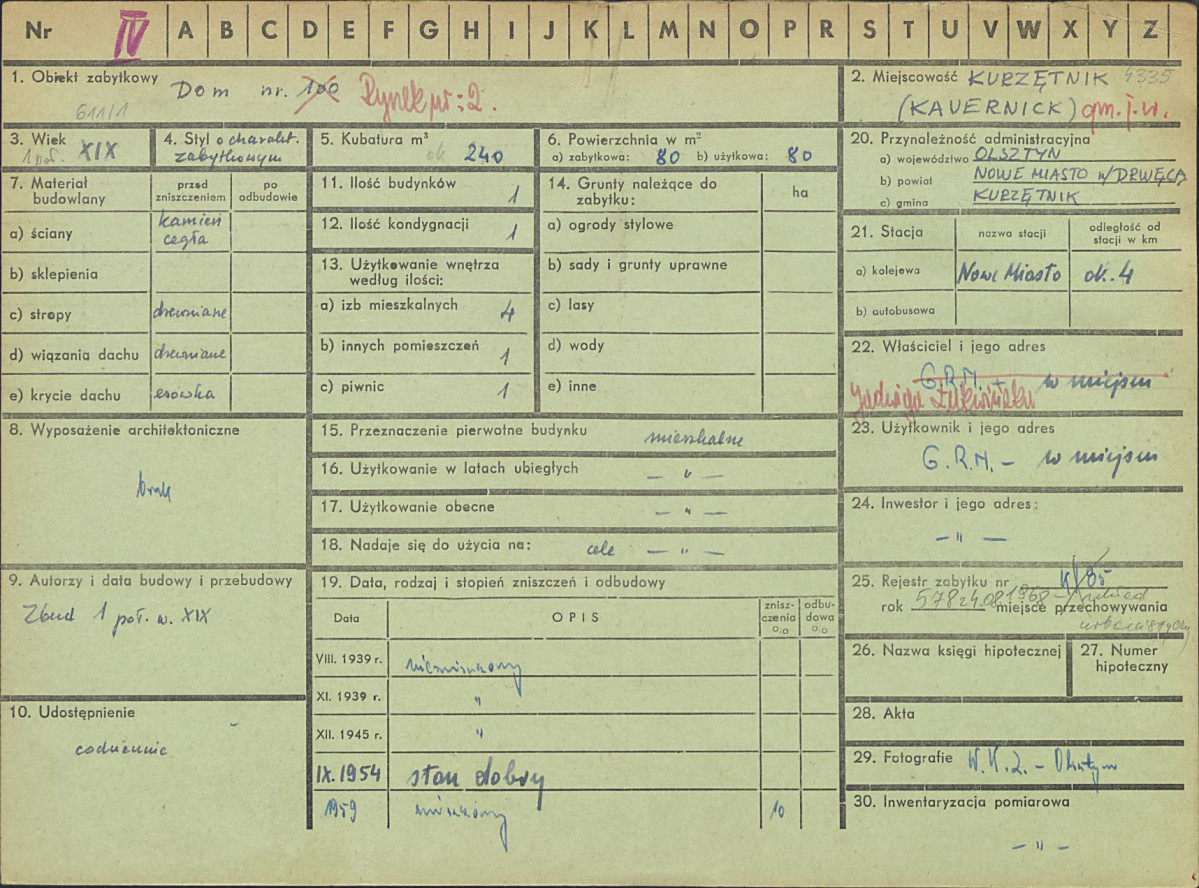 Nr IV A B C D E F G H I J K L M N O P R S T U V W X Y Z
1. Obiekt zabytkowy Dom nr. 100 Rynek nr: 2.
611/1
2. Miejscowość KURZĘTNIK 4335
(KAUERNICK) gm. j.w.
3. Wiek
1 poł. XIX
4. Styl o charakt.
zabytkowym
5. Kubatura m³
ok 240
6. Powierzchnia w m²
a) zabytkowa: 80 b) użytkowa: 80
20. Przynależność administracyjna
a) województwo OLSZTYN
b) powiat NOWE MIASTO n/DRWĘCĄ
c) gmina KURZĘTNIK
7. Materiał
budowlany
przed
zniszczeniem
po
odbudowie
a) ściany kamień
cegła
b) sklepienia
c) stropy drewniane
d) wiązania dachu drewniane
e) krycie dachu esówka
11. Ilość budynków 1
12. Ilość kondygnacji 1
13. Użytkowanie wnętrza
według ilości:
a) izb mieszkalnych 4
b) innych pomieszczeń 1
c) piwnic 1
14. Grunty należące do
zabytku:
ha
a) ogrody stylowe
b) sady i grunty uprawne
c) lasy
d) wody
e) inne
21. Stacja
nazwa stacji
odległość od
stacji w km
a) kolejowa Nowe Miasto ok. 4
b) autobusowa
22. Właściciel i jego adres
G.R.M. – w miejscu
Jadwiga
23. Użytkownik i jego adres
G.R.N. – w miejscu
8. Wyposażenie architektoniczne
brak
15. Przeznaczenie pierwotne budynku mieszkalne
16. Użytkowanie w latach ubiegłych — " —
17. Użytkowanie obecne — " —
18. Nadaje się do użycia na: cele — " —
24. Inwestor i jego adres:
— " —
9. Autorzy i data budowy i przebudowy
Zbud 1 poł. w. XIX
19. Data, rodzaj i stopień zniszczeń i odbudowy
Data
OPIS
znisz-
czenia
%
odbu-
dowa
%
VIII. 1939 r. niezniszczony
XI. 1939 r. "
XII. 1945 r. "
IX. 1954 stan dobry
1959 zniszczony 10
25. Rejestr zabytku nr K/85
rok 578 z 4.08.1968 – układ
miejsce przechowywania
urbanistyczny
26. Nazwa księgi hipotecznej
27. Numer
hipoteczny
10. Udostępnienie
codziennie
28. Akta
29. Fotografie W.K.Z. – Olsztyn
30. Inwentaryzacja pomiarowa
— " —